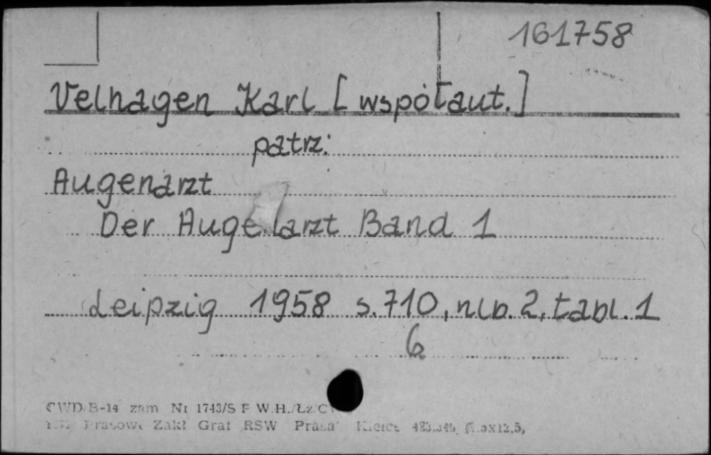 161758
Velhagen Karl [współaut.]
patrz:
Augenarzt
Der Augenarzt Band 1
Leipzig 1958 s. 710, nlb. 2, tabl. 1
6
CWD B-14 zam Nr 1743/S F W.H./Łz/C
Prasowe Zakł Graf RSW "Prasa" Kielce